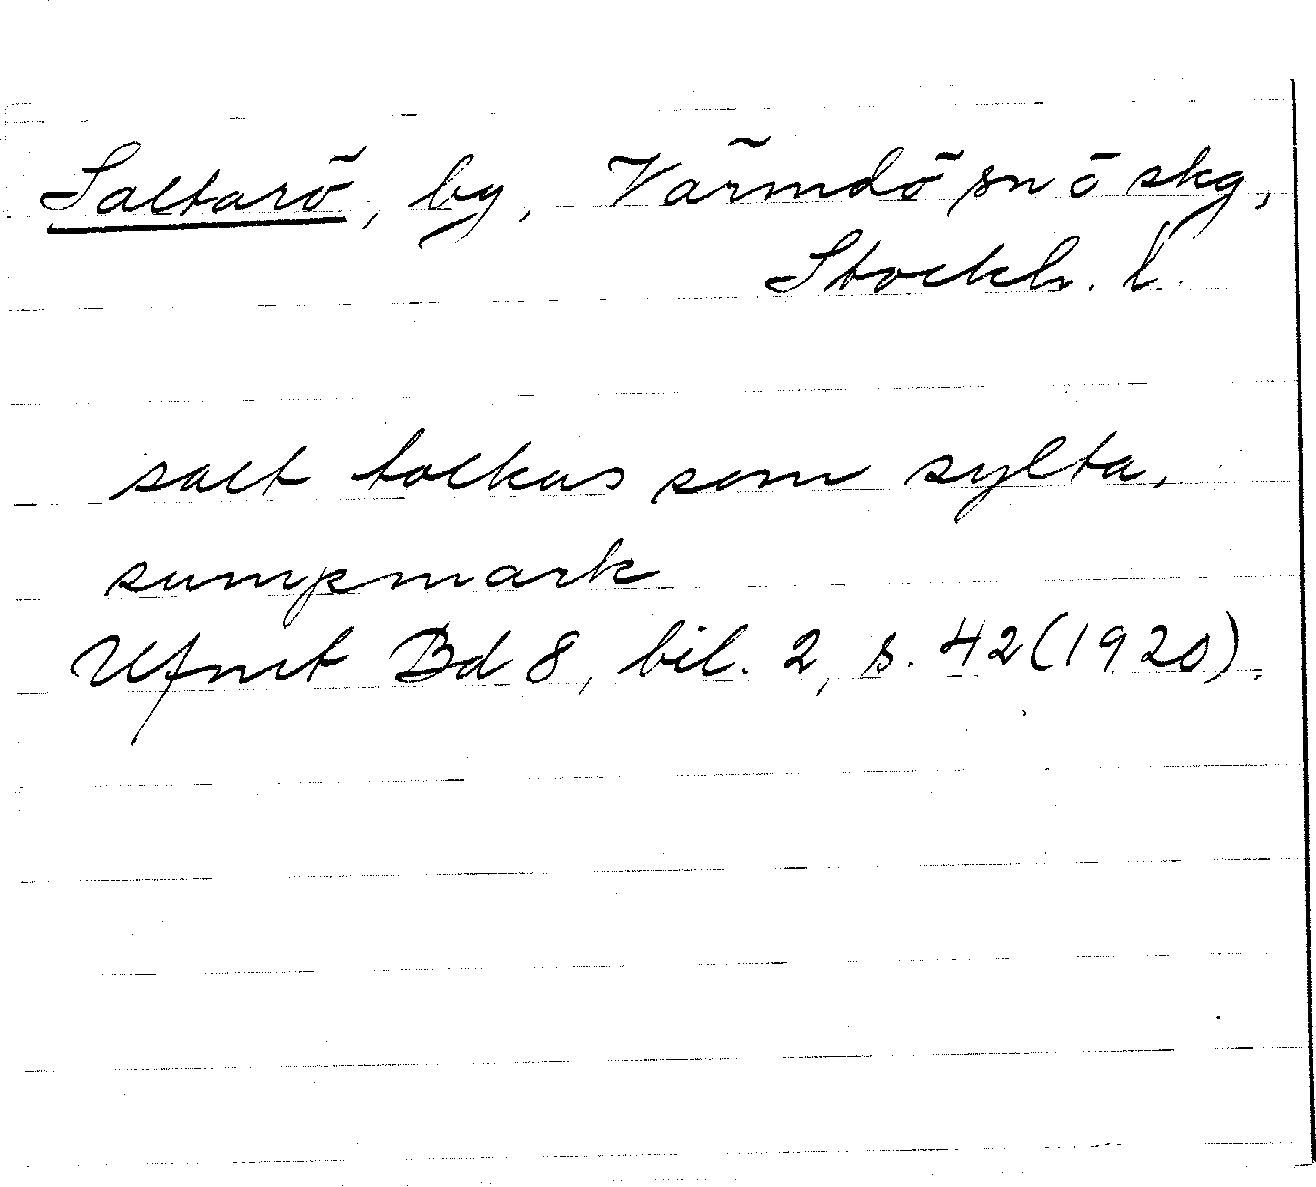 Saltarö, by, Värmdö sn ö skg,
Stockh. l.
salt tolkas som sylta,
sumpmark
Ufmt Bd 8, bil. 2, s. 42 (1920).